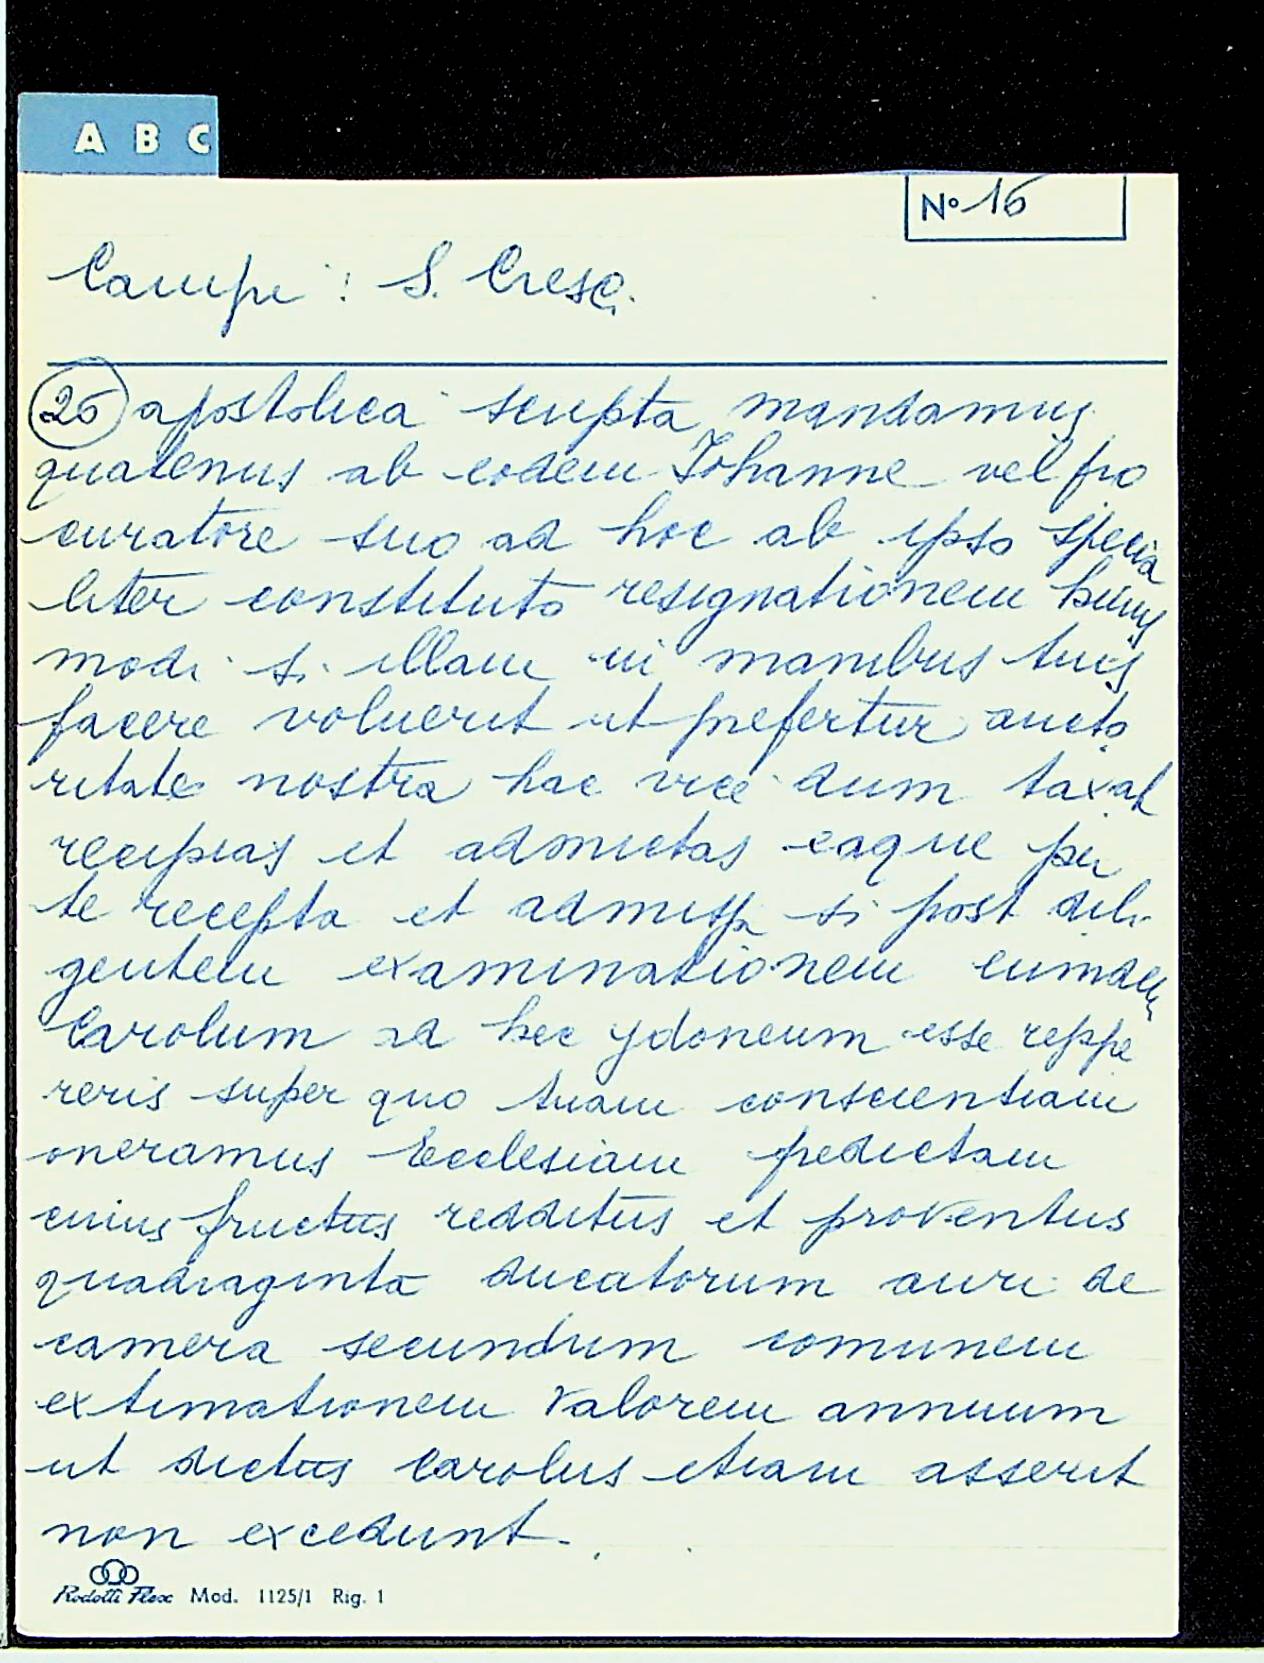 A B C
Nº 16
Campi : S. Cresc.
26 apostolica scripta mandamus
quatenus ab eodem Johanne vel pro
curatore suo ad hoc ab ipso specia
liter constituto resignationem huius
modi si illam in manibus tuis
facere voluerit ut prefertur aucto
ritate nostra hac vice dum taxat
recipias et admictas eaque per
te recepta et admissa si post dili
gentem examinationem eumdem
Carolum ad hec ydoneum esse reppe
reris super quo tuam conscientiam
oneramus Ecclesiam predictam
cuius fructus redditus et proventus
quadraginta ducatorum auri de
camera secundum comunem
extimationem valorem annuum
ut dictus Carolus etiam asserit
non excedunt.
Rodotti Flex Mod. 1125/1 Rig. 1